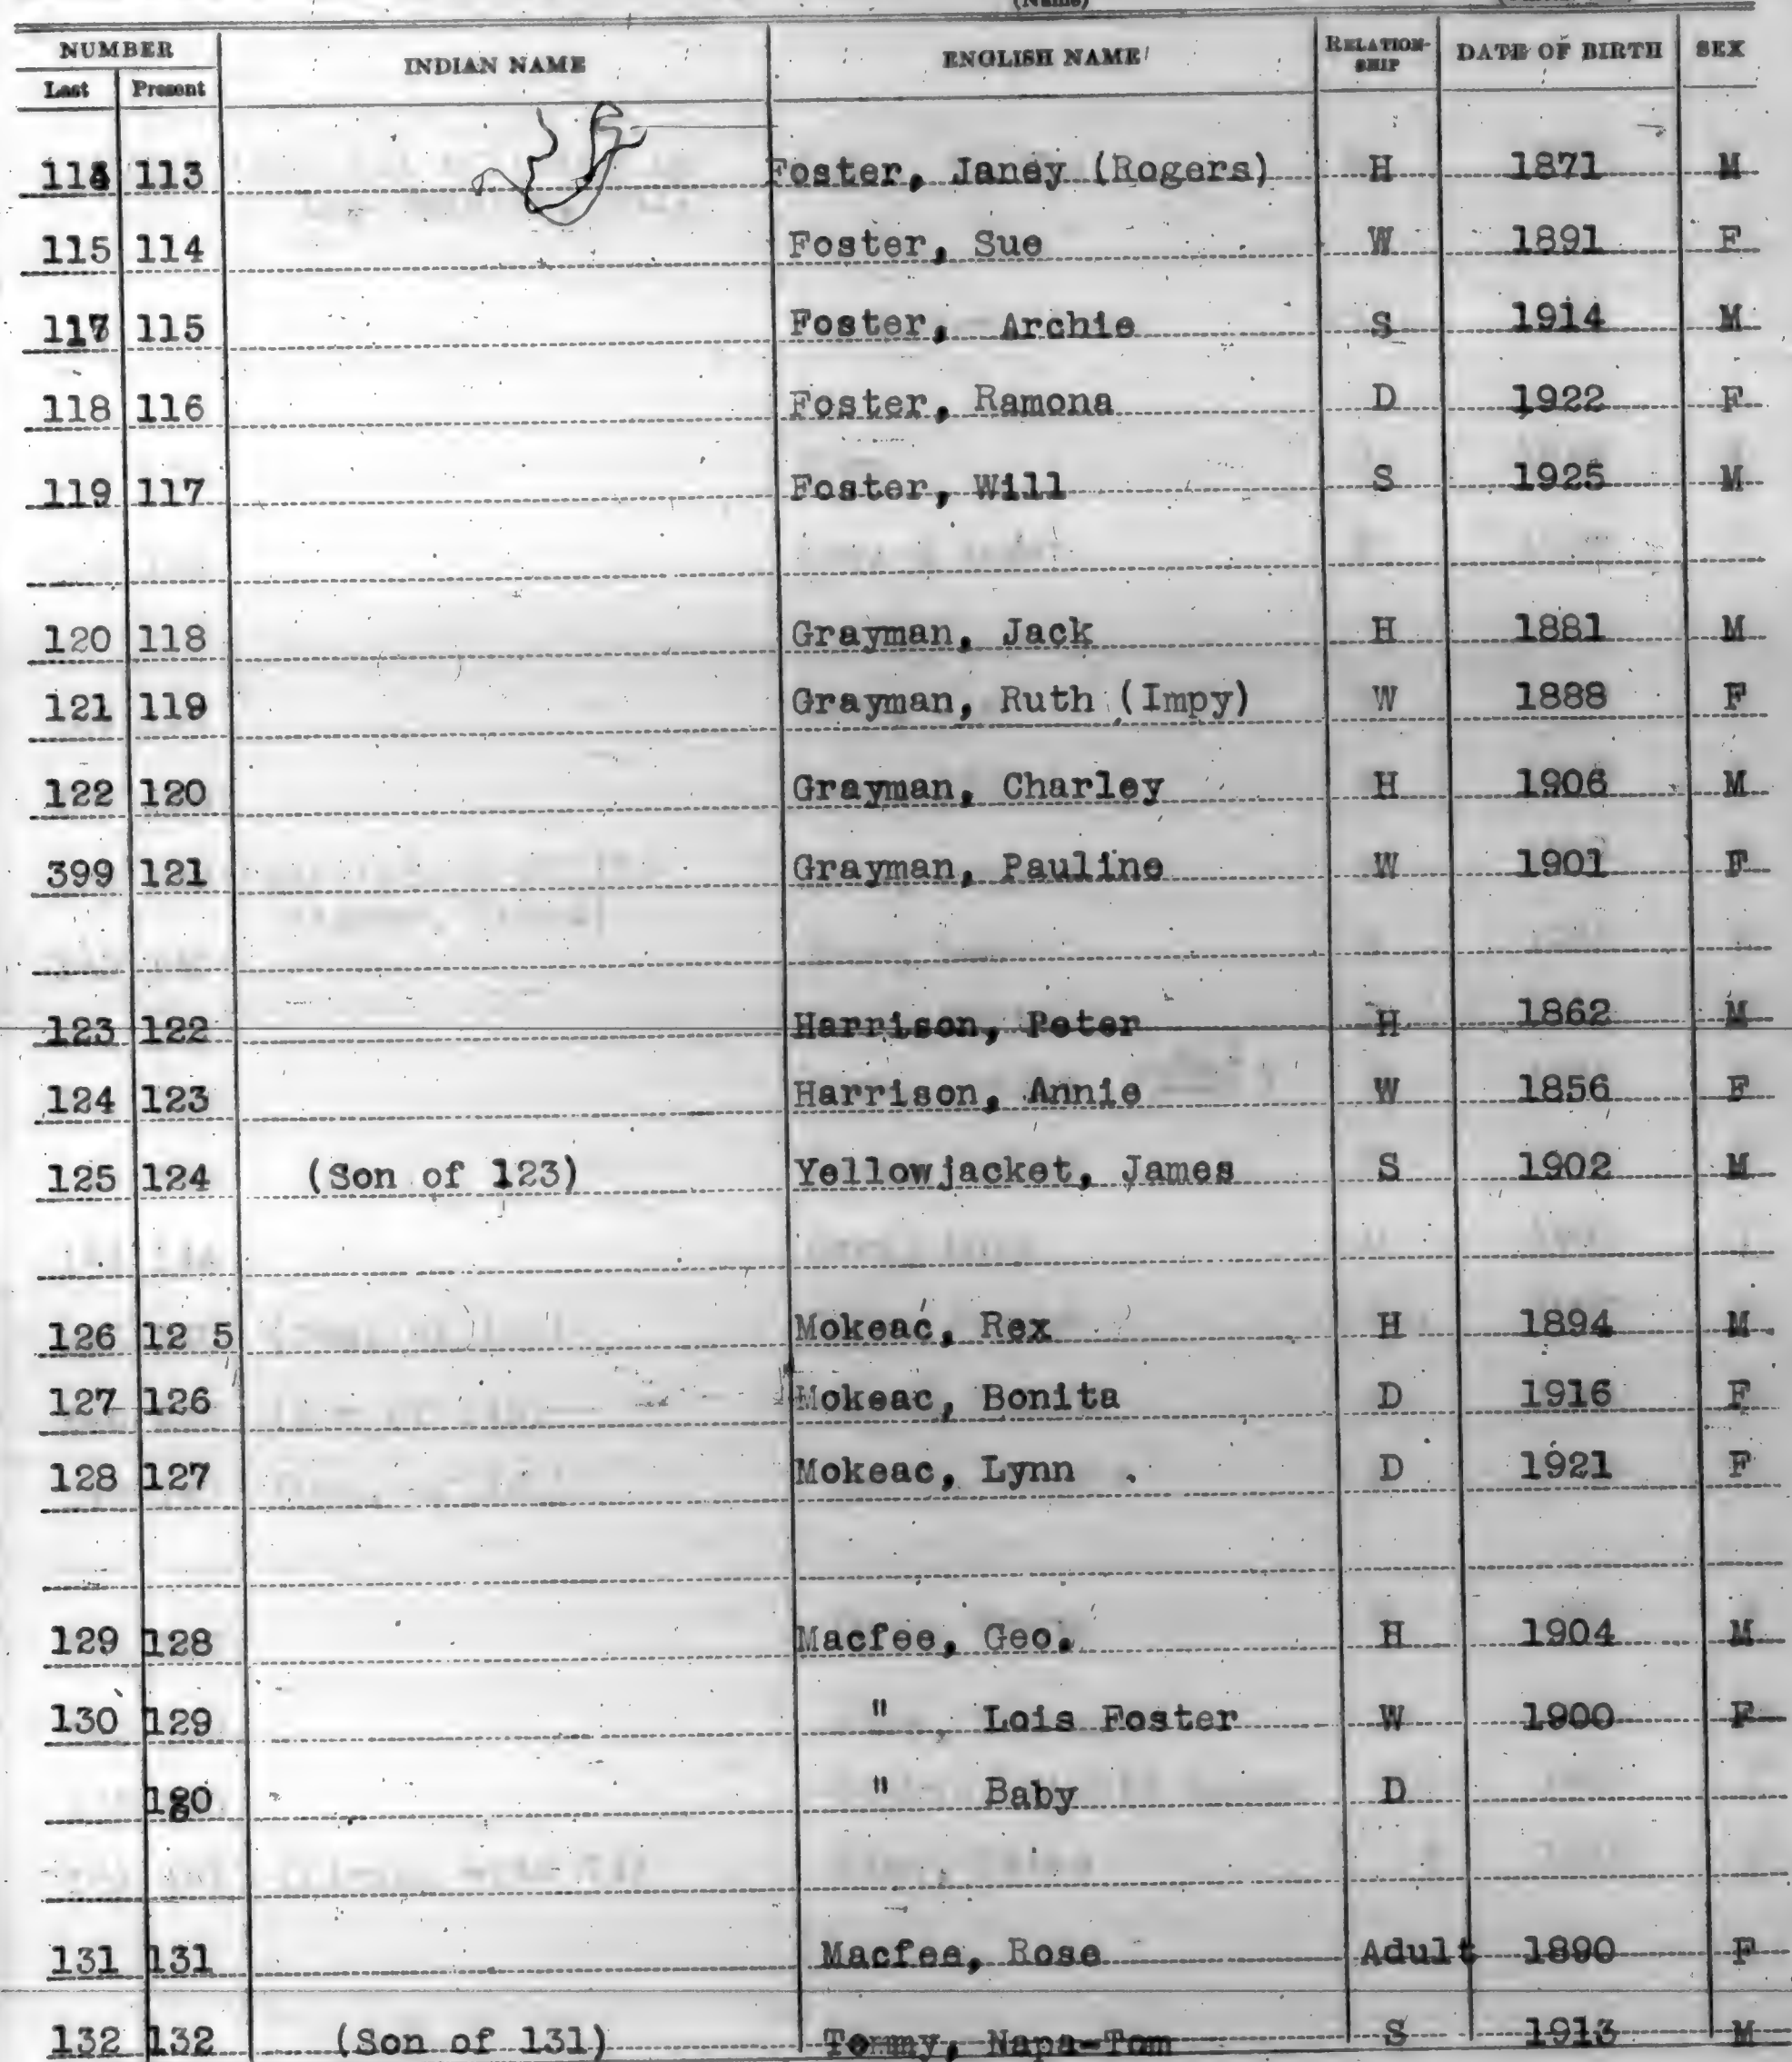 (Name)
NUMBER INDIAN NAME ENGLISH NAME RELATION-SHIP DATE OF BIRTH SEX
Last Present
113 Foster, Janey (Rogers) H 1871 M
115 114 Foster, Sue W 1891 F
117 115 Foster, Archie S 1914 M
118 116 Foster, Ramona D 1922 F
119 117 Foster, Will S 1925 M
120 118 Grayman, Jack H 1881 M
121 119 Grayman, Ruth (Impy) W 1888 F
122 120 Grayman, Charley H 1906 M
399 121 Grayman, Pauline W 1901 F
123 122 Harrison, Peter H 1862 M
124 123 Harrison, Annie W 1856 F
125 124 (Son of 123) Yellowjacket, James S 1902 M
126 12 5 Mokeac, Rex H 1894 M
127 126 Mokeac, Bonita D 1916 F
128 127 Mokeac, Lynn . D 1921 F
129 128 Macfee, Geo. H 1904 M
130 129 " Lois Foster W 1900 F
" Baby D
131 131 Macfee, Rose Adult 1890 F
132 132 (Son of 131) Tommy, Napa-Tom S 1913 M